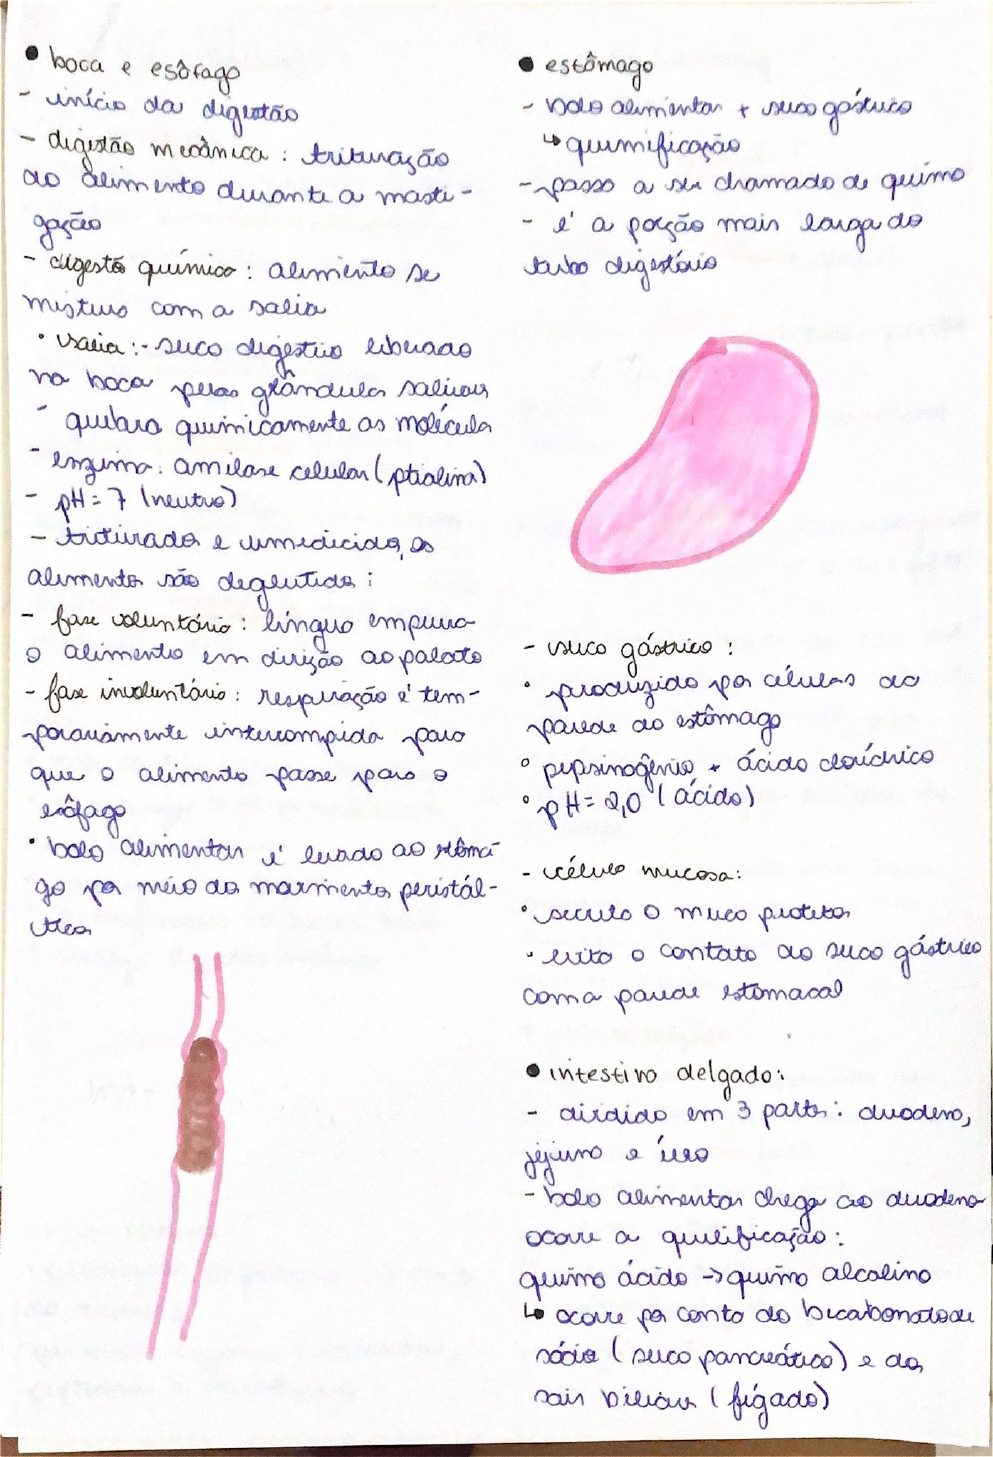 • boca e esôfago
- início da digestão
- digestão mecânica: trituração
do alimento durante a masti-
gação
- digestão química: alimento se
mistura com a saliva
• saliva: - suco digestivo liberado
na boca pelas glândulas salivares
- quebra quimicamente as moléculas
- enzima: amilase celular (ptialina)
- pH = 7 (neutro)
- triturados e umedecidos, os
alimentos são deglutidos:
- fase voluntária: língua empurra
o alimento em direção ao palato
- fase involuntária: respiração é tem-
porariamente interrompida para
que o alimento passe para o
esôfago
• bolo alimentar é levado ao estôma-
go por meio dos movimentos peristál-
ticos
• estômago
- bolo alimentar + suco gástrico
↳ quimificação
- passa a ser chamado de quimo
- é a porção mais larga do
tubo digestório
- suco gástrico:
• produzido por células da
parede do estômago
• pepsinogênio + ácido clorídrico
• pH = 2,0 (ácido)
- célula mucosa:
• secreta o muco protetor
• evita o contato do suco gástrico
com a parede estomacal
• intestino delgado:
- dividido em 3 partes: duodeno,
jejuno e íleo
- bolo alimentar chega ao duodeno
ocorre a quilificação:
quimo ácido -> quimo alcalino
↳ ocorre por conta do bicarbonato de
sódio (suco pancreático) e dos
sais biliares (fígado)